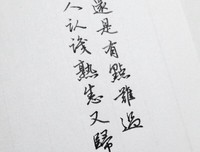 還是有點難過
人認識熟悉又歸